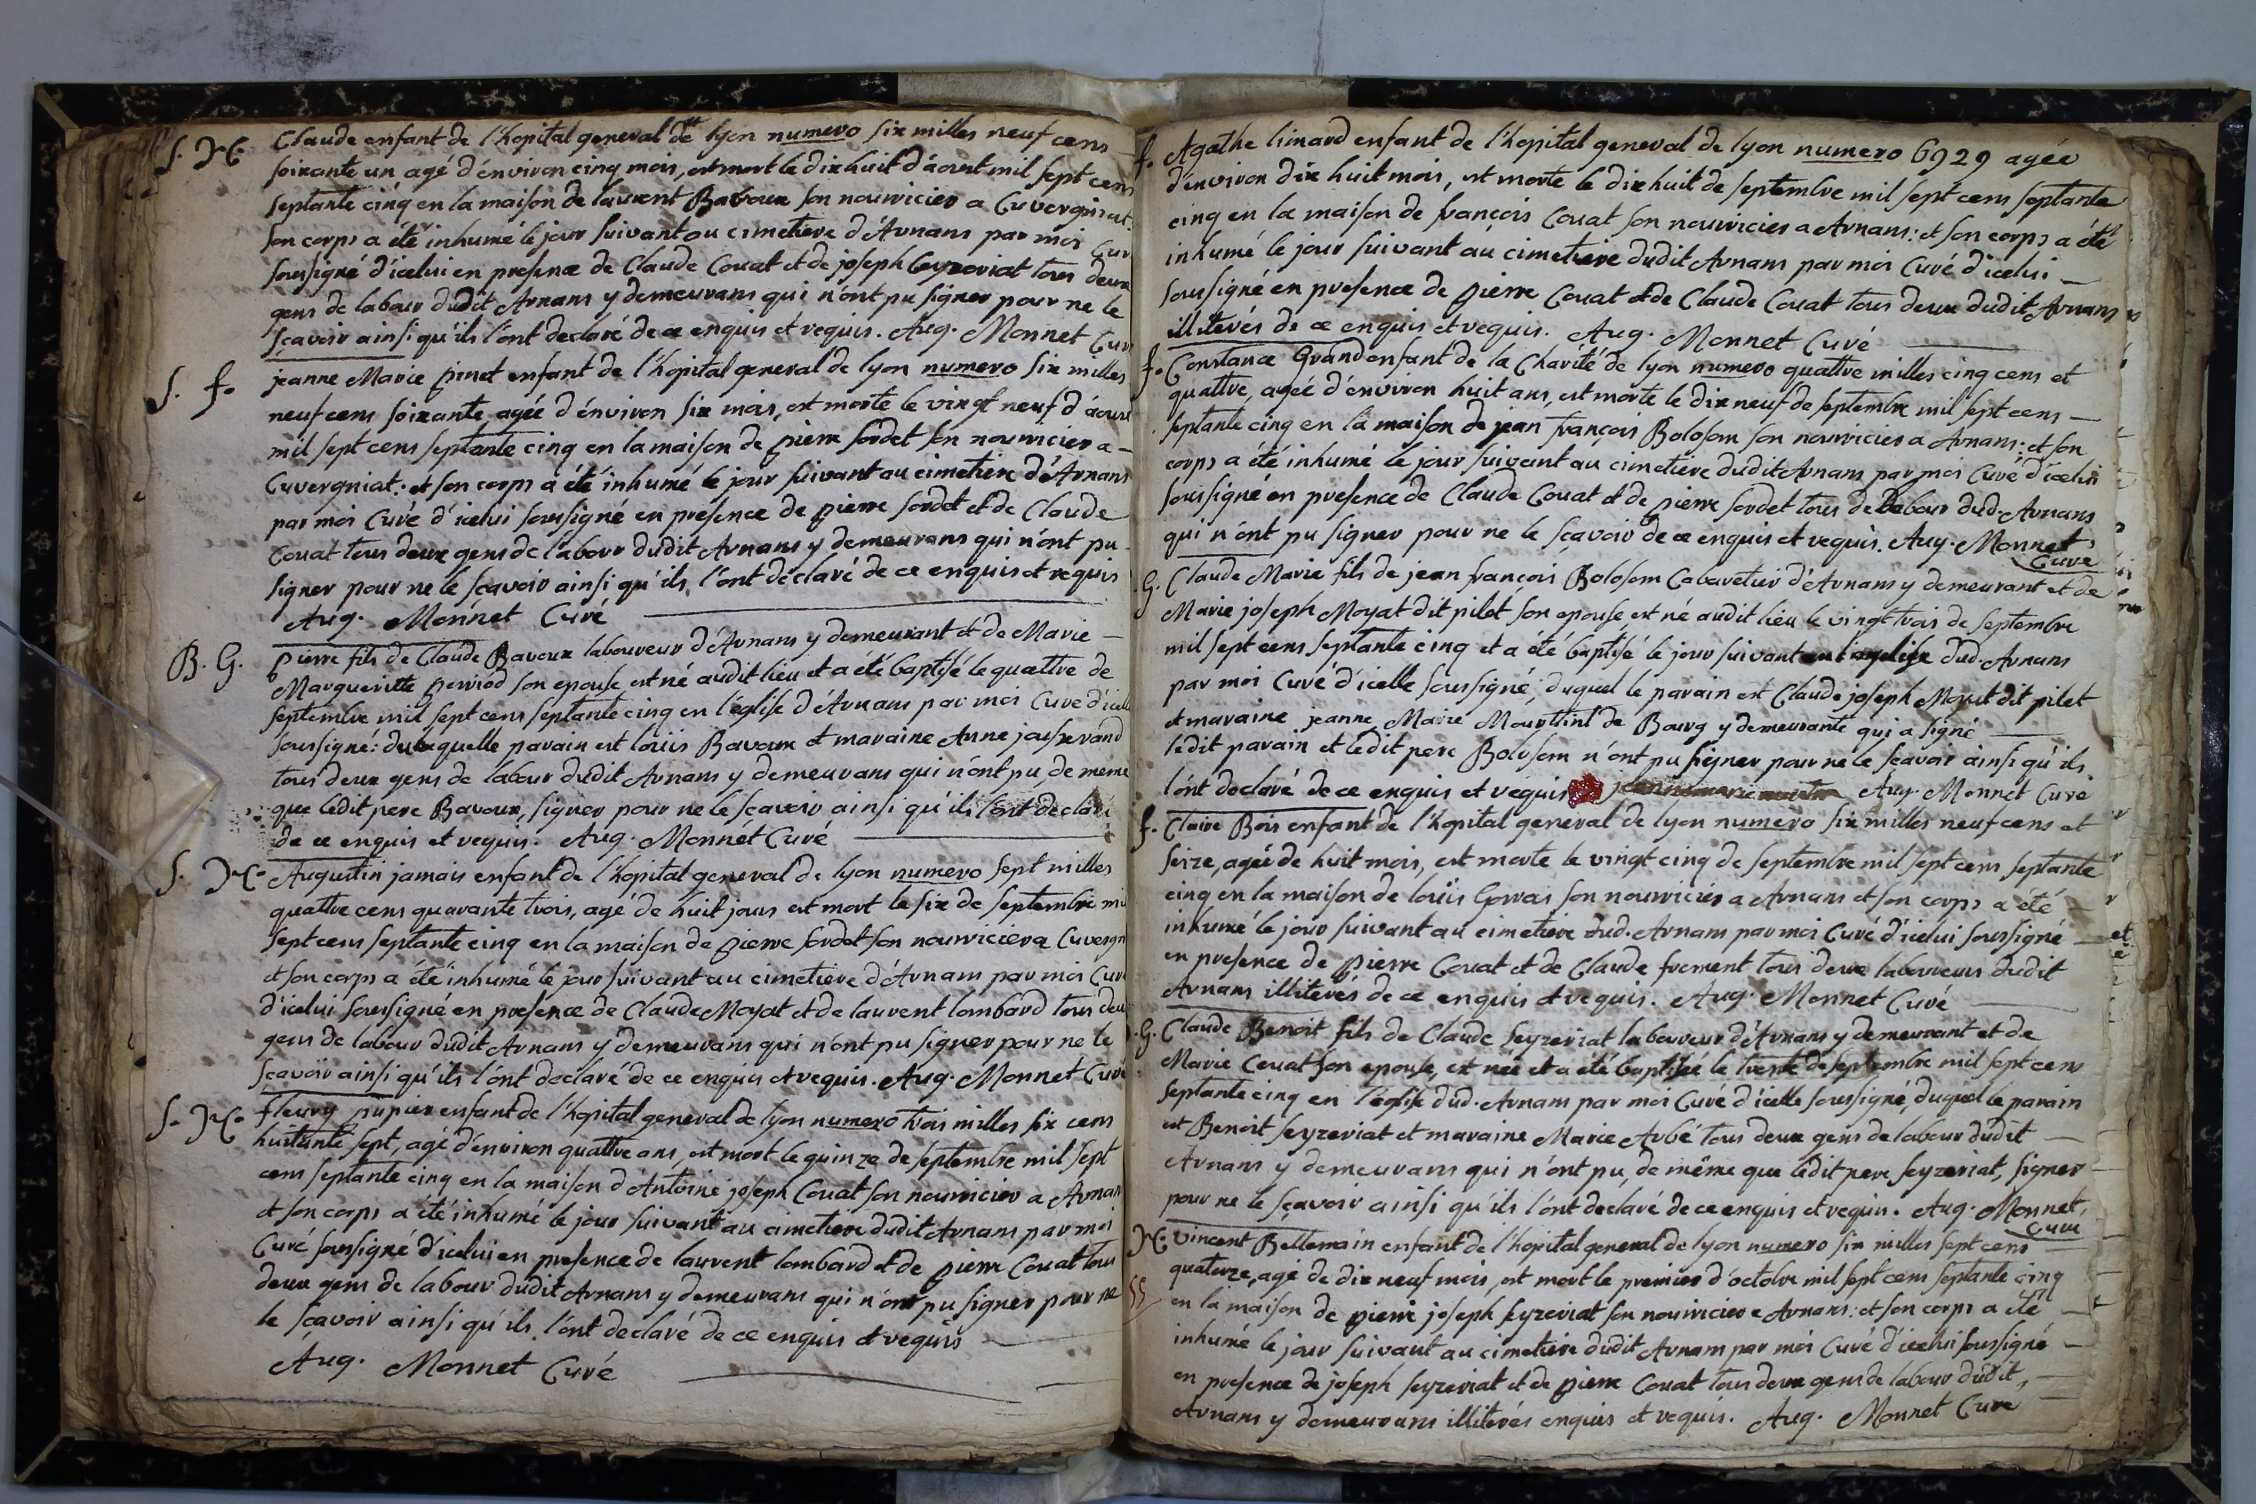 S. M. Claude enfant de l'hopital general de lyon numero six milles neuf cens
soixante un agé d'énviron cinq mois, est mort le dix huit d'áoust mil sept cens
septante cinq en la maison de laurent Bavoux son nourricier a Cuvergniat.
son corps a été inhumé le jour suivant au cimetiere d'Arnans par moi Curé
soussigné d'icelui en presence de Claude Couat et de joseph Ceyzeriat tous deux
gens de labour dudit Arnans y demeurans qui n'ont pu signer pour ne le
sçavoir ainsi qu'ils l'ont declaré de ce enquis et requis. Aug. Monnet Curé
S. f. jeanne Marie pinet enfant de l'hopital general de lyon numero six milles
neuf cens soixante agée d'énviron six mois, est morte le vingt neuf d'áoust
mil sept cens septante cinq en la maison de pierre sordet son nourricier a
Cuvergniat: et son corps a été inhumé le jour suivant au cimetiere d'Arnans
par moi Curé d'icelui soussigné en presence de pierre sordet et de Claude
Couat tous deux gens de labour dudit Arnans y demeurans qui n'ont pu
signer pour ne le sçavoir ainsi qu'ils l'ont declaré de ce enquis et requis
Aug. Monnet Curé
B. G. pierre fils de Claude Bavoux laboureur d'Arnans y demeurant et de Marie
Margueritte perriod son epouse est né audit lieu et a été baptisé le quattre de
septembre mil sept cens septante cinq en l'église d'Arnans par moi Curé d'icelle
soussigné: duquelle parain est loüis Bavoux et maraine Anne josserand
tous deux gens de labour dudit Arnans y demeurans qui n'ont pu de meme
que ledit pere Bavoux, signer pour ne le sçavoir ainsi qu'ils l'ont declaré
de ce enquis et requis. Aug. Monnet Curé
S. M. Augustin jamais enfant de l'hopital general de lyon numero sept milles
quattre cens quarante trois, agé de huit jours est mort le six de septembre mil
sept cens septante cinq en la maison de pierre sordet son nourricier a Cuvergn
et son corps a été inhumé le jour suivant au cimetiere d'Arnans par moi Curé
d'icelui soussigné en presence de Claude Moyat et de laurent lombard tous deux
gens de labour dudit Arnans y demeurans qui n'ont pu signer pour ne le
sçavoir ainsi qu'ils l'ont declaré de ce enquis et requis. Aug. Monnet Curé
S. M. fleury pupier enfant de l'hopital general de lyon numero trois milles six cens
huitante sept, agé d'énviron quattre ans, est mort le quinze de septembre mil sept
cens septante cinq en la maison d'Antoine joseph Couat son nourricier a Arnans
et son corps a été inhumé le jour suivant au cimetiere dudit Arnans par moi
Curé soussigné d'icelui en presence de laurent lombard et de pierre Couat tous
deux gens de labour dudit Arnans y demeurans qui n'ont pu signer pour ne
le sçavoir ainsi qu'ils l'ont declaré de ce enquis et requis
Aug. Monnet Curé
f. Agathe limard enfant de l'hopital general de lyon numero 6929 agée
d'environ dix huit mois, est morte le dix huit de septembre mil sept cens septante
cinq en la maison de françois Couat son nourricier a Arnans: et son corps a été
inhumé le jour suivant au cimetiere dudit Arnans par moi Curé d'icelui
soussigné en presence de pierre Couat et de Claude Couat tous deux dudit Arnans
illiterés de ce enquis et requis. Aug. Monnet Curé
f. Constance Grand enfant de la Charité de lyon numero quattre milles cinq cens et
quattre, agée d'environ huit ans, est morte le dix neuf de septembre mil sept cens
septante cinq en la maison de jean françois Bolosom son nourricier a Arnans: et son
corps a été inhumé le jour suivant au cimetiere dudit Arnans par moi Curé d'icelui
soussigné en presence de Claude Couat et de pierre sordet tous de labour dud. Arnans
qui n'ont pu signer pour ne le sçavoir de ce enquis et requis. Aug. Monnet
Curé
G. Claude Marie fils de jean françois Bolosom Cabaretier d'Arnans y demeurant et de
Marie joseph Moyat dit pilet son epouse est né audit lieu le vingt trois de septembre
mil sept cens septante cinq et a été baptisé le jour suivant en l'eglise dud. Arnans
par moi Curé d'icelle soussigné; duquel le parain est Claude joseph Moyat dit pilet
et maraine jeanne Marie de Bourg y demeurante qui a signé
ledit parain et ledit pere Bolosom n'ont pu signer pour ne le sçavoir ainsi qu'ils
l'ont declaré de ce enquis et requis jeanne marie Aug. Monnet Curé
f. Claire Bois enfant de l'hopital general de lyon numero six milles neuf cens et
seize, agée de huit mois, est morte le vingt cinq de septembre mil sept cens septante
cinq en la maison de loüis Gorvas son nourricier a Arnans et son corps a été
inhumé le jour suivant au cimetiere dud. Arnans par moi Curé d'icelui soussigné
en presence de pierre Couat et de Claude froment tous deux laboureurs dudit
Arnans illiterés de ce enquis et requis. Aug. Monnet Curé
G. Claude Benoit fils de Claude Seyzeriat laboureur d'Arnans y demeurant et de
Marie Couat son epouse, est née et a été baptisé le trente de septembre mil sept cens
septante cinq en l'église dud. Arnans par moi Curé d'icelle soussigné, duquel le parain
est Benoit Seyzeriat et maraine Marie Arbé tous deux gens de labour dudit
Arnans y demeurans qui n'ont pu, de même que ledit pere Seyzeriat, signer
pour ne le sçavoir ainsi qu'ils l'ont declaré de ce enquis et requis. Aug. Monnet,
Curé
M. vincent Bellemain enfant de l'hopital general de lyon numero six milles sept cens
quatorze, agé de dix neuf mois, est mort le premier d'octobre mil sept cens septante cinq
55 en la maison de pierre joseph Seyzeriat son nourricier a Arnans: et son corps a été
inhumé le jour suivant au cimetiere dudit Arnans par moi Curé d'icelui soussigné
en presence de joseph Seyzeriat et de pierre Couat tous deux gens de labour dudit
Arnans y demeurans illiterés enquis et requis. Aug. Monnet Curé